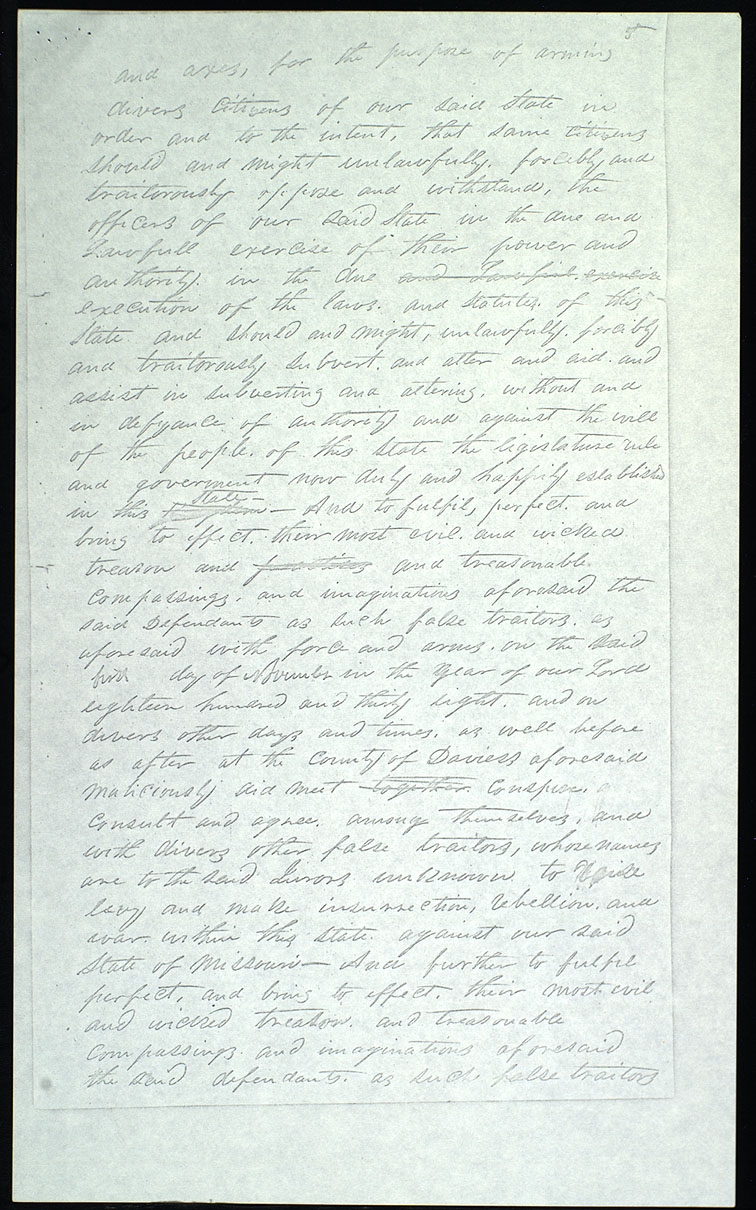 5
and axes, for the purpose of arming
divers citizens of our said State in
order and to the intent, that same citizens
should and might unlawfully. forcibly and
traitorously oppose and withstand, the
officers of our said State in the due and
Lawfull exercise of their power and
authority. in the due and Lawful. exercise
execution of the laws. and statutes. of this
State. and should and might, unlawfully. forcibly
and traitorously subvert. and alter and aid. and
assist in subverting and altering. without and
in defyance of authority and against the will
of the people. of this State the legislature rule
and goverment now duly and happily established
in this State – And to fulfil, perfect. and
bring to effect. their most evil. and wicked
treason and and treasonable.
compassings. and imaginations aforesaid the
said Defendants as such false traitors. as
aforesaid with force and arms. on the said
first day of November in the year of our Lord
eighteen hundred and thirty eight. and on
divers other days and times. as well before
as after at the County of Daviess aforesaid
maliciously did meet together. conspire.
consult and agree. among themselves, and
with divers other false traitors, whose names
are to the said Jurors unknown to raise
levy and make insurrection, rebellion. and
war. within this State. against our said
State of Missouri – And further to fulfil
perfect, and bring to effect. their most evil
and wicked treason. and treasonable
compassings. and imaginations aforesaid
the said defendants. as such false traitors